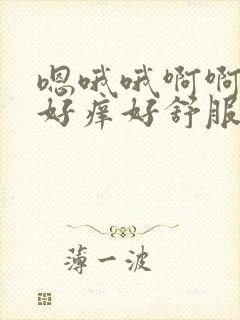 嗯哦哦啊啊
好痒好舒服
薄一波